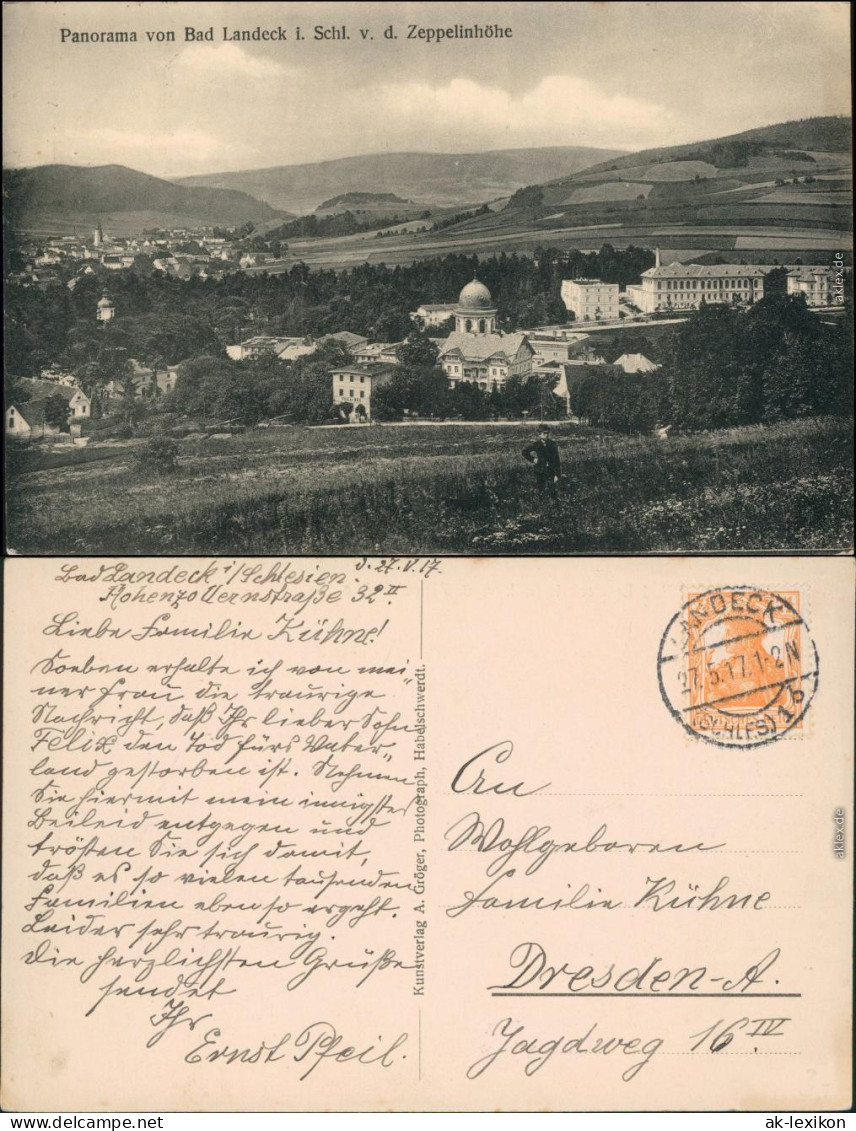 Panorama von Bad Landeck i. Schl. v. d. Zeppelinhöhe
aklex.de
Bad Landeck i/Schlesien. d. 27.V.17.
Hohenzollernstraße 32 II.
Liebe Familie Kühne!
Soeben erhalte ich von mei-
ner Frau die traurige
Nachricht, daß Ihr lieber Sohn
Felix den Tod fürs Vater-
land gestorben ist. Nehmen
Sie hiermit mein innigstes
Beileid entgegen und
trösten Sie sich damit,
daß es so vielen tausenden
Familien ebenso ergeht.
Leider sehr traurig.
Die herzlichsten Grüße
sendet
Ihr
Ernst Pfeil.
Kunstverlag A. Gröger, Photograph, Habelschwerdt.
LANDECK
27.5.17.1-2N
(SCHLES) 1b
An
Wohlgeboren
Familie Kühne
Dresden-A.
Jagdweg 16 IV.
aklex.de
www.delcampe.net
ak-lexikon